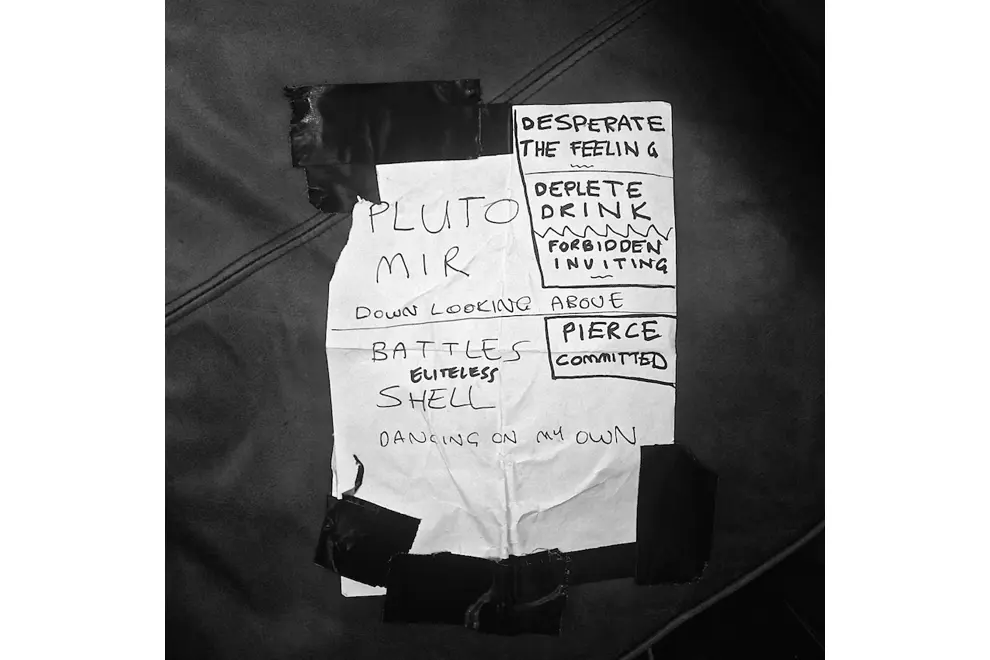 DESPERATE
THE FEELING
DEPLETE
DRINK
FORBIDDEN
INVITING
PLUTO
MIR
DOWN LOOKING ABOVE
PIERCE
COMMITTED
BATTLES
ELITELESS
SHELL
DANCING ON MY OWN